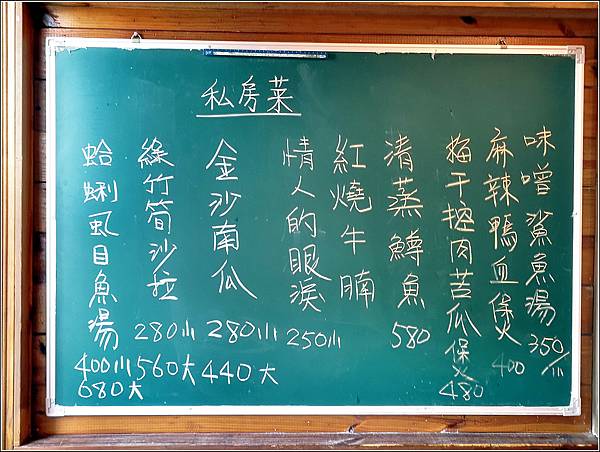 私房菜
味噌鯊魚湯 350/小
麻辣鴨血煲 400
梅干控肉苦瓜煲 480
清蒸鱘魚 580
紅燒牛腩
情人的眼淚 250小
金沙南瓜 280小 440大
綠竹筍沙拉 280小 560大
蛤蜊虱目魚湯 400小 680大